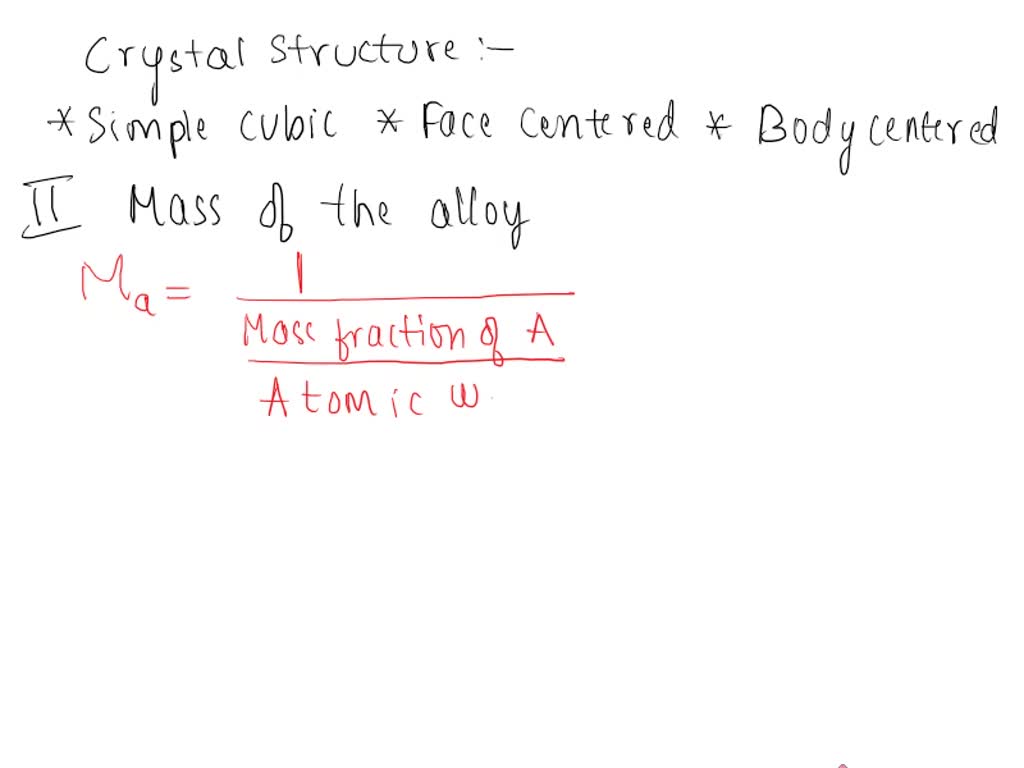 Crystal Structure :-
* Simple cubic * Face Centered * Body centered
II Mass of the alloy
Ma = 1
Mass fraction of A
Atomic w